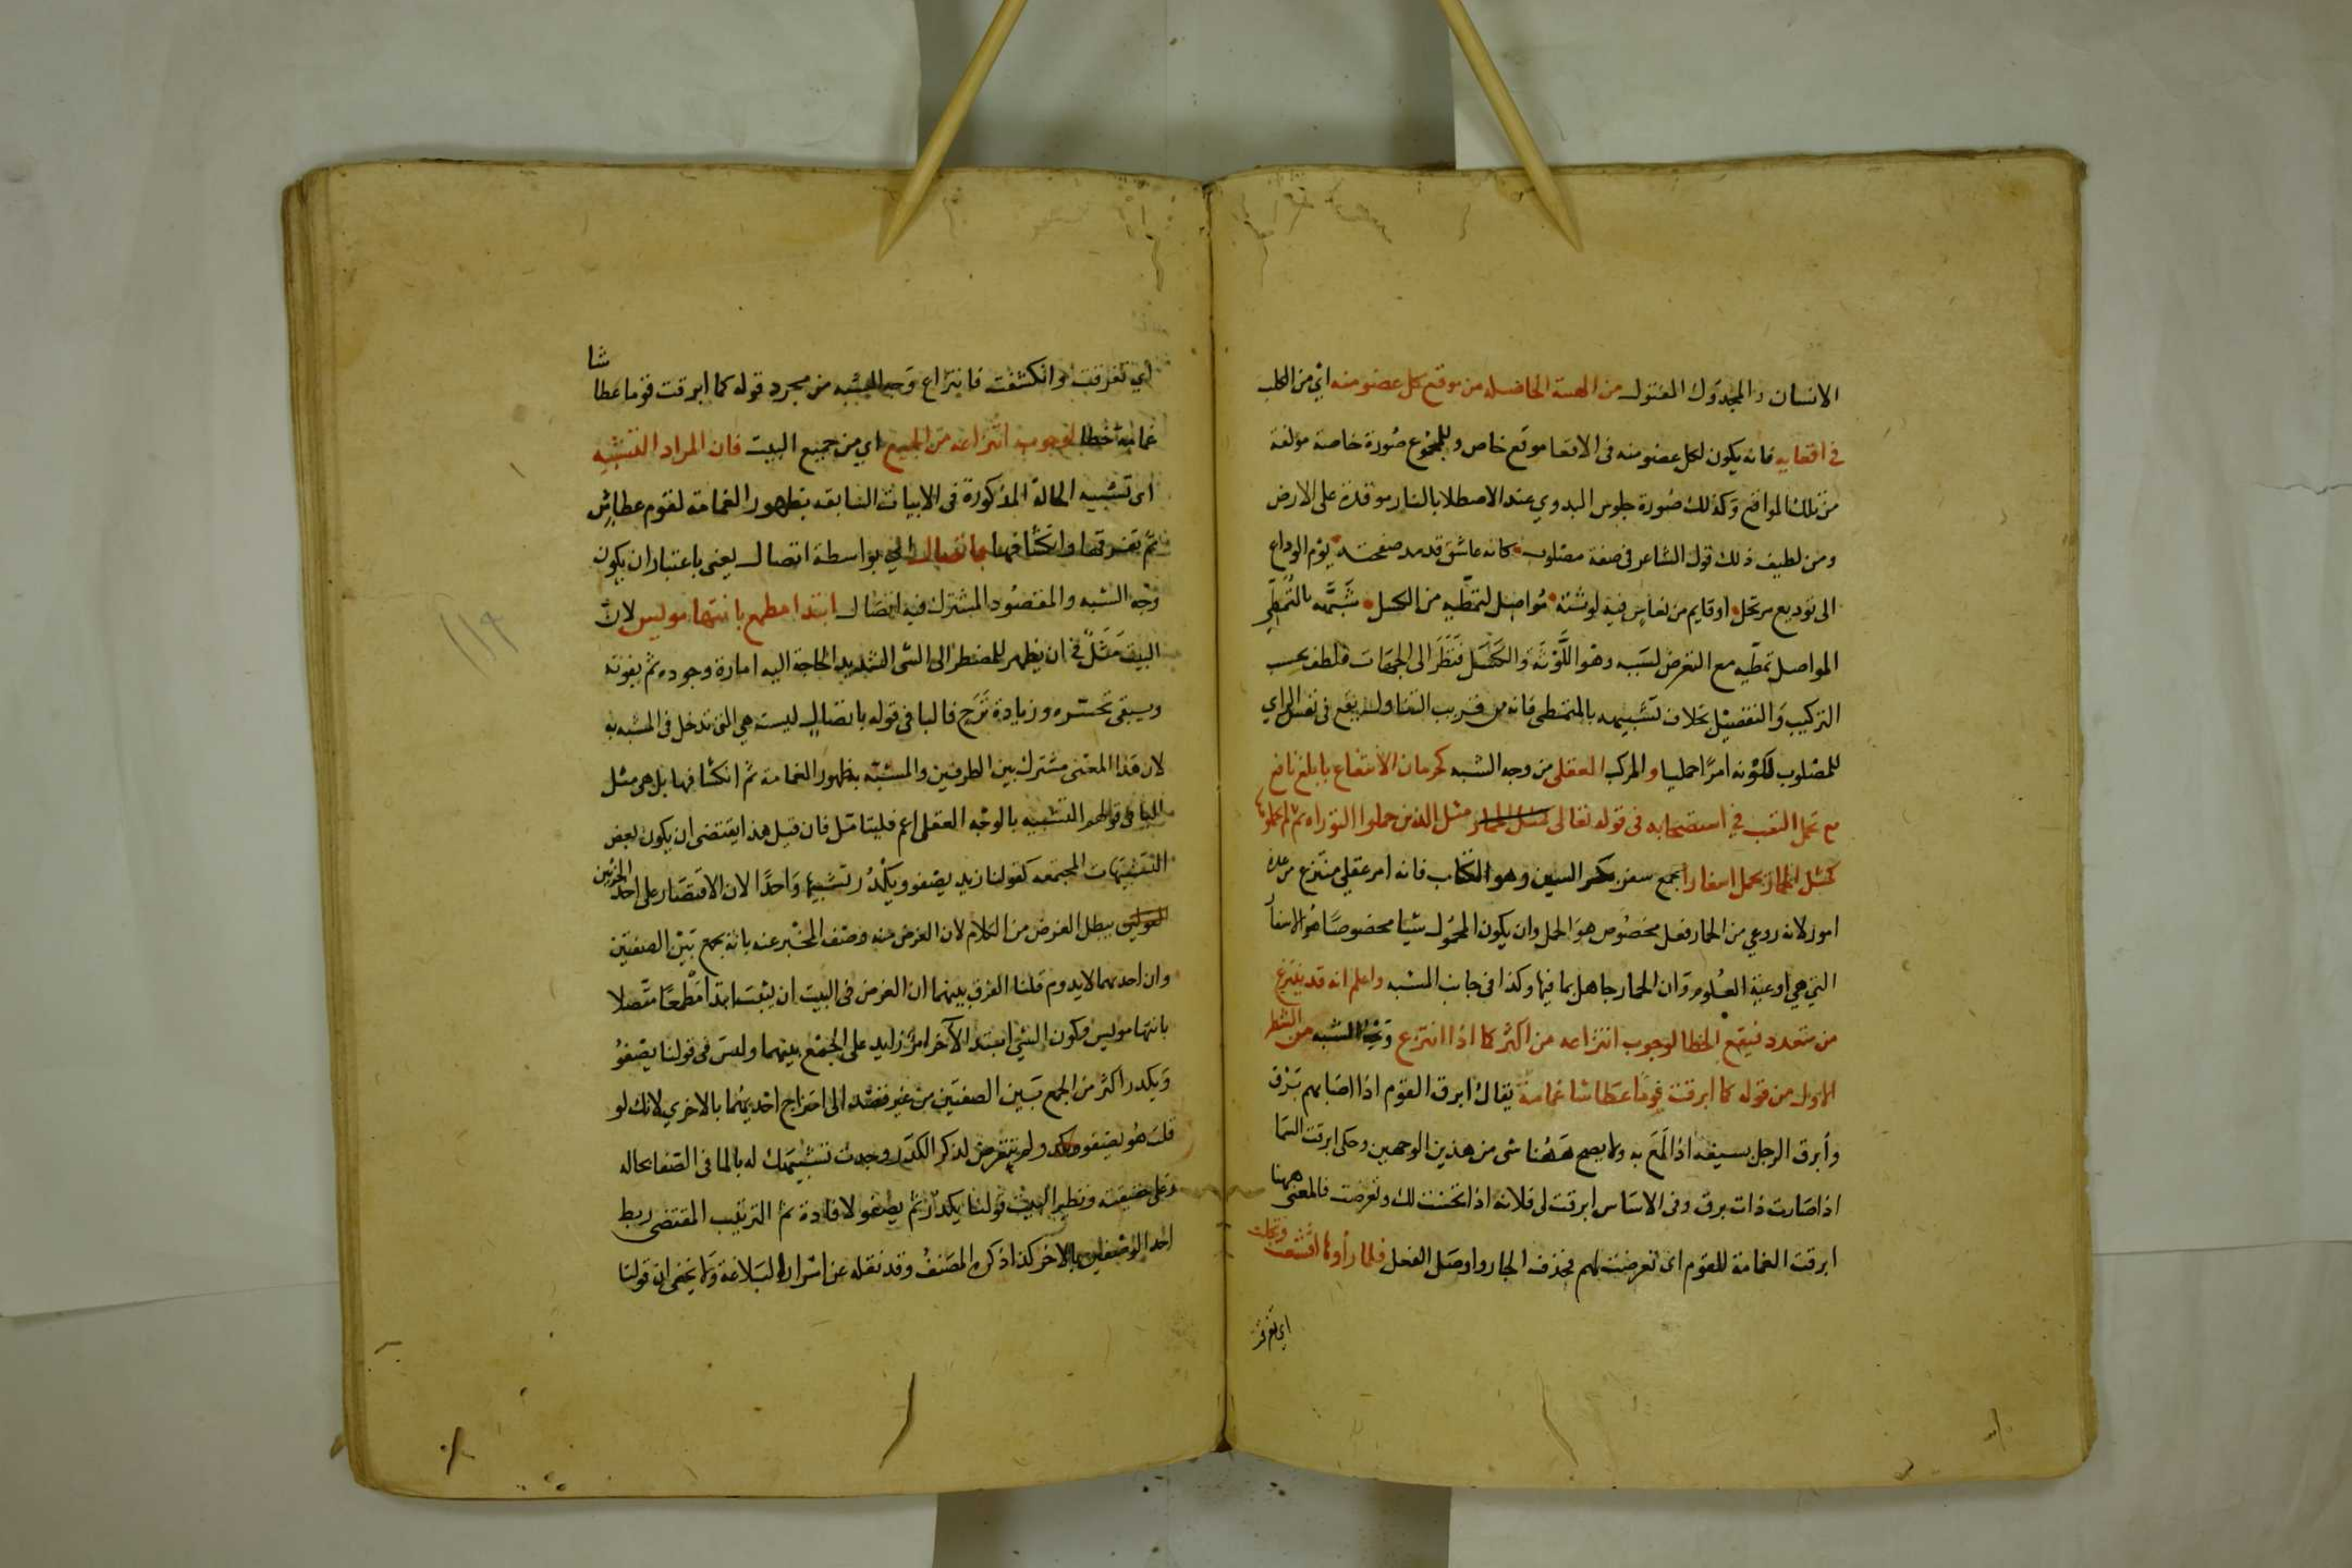 الانسان والمجدول المفتول من الهيئة الحاصلة من موقع كل عضو منه اي من الكلب
في اقعايه فانه يكون لكل عضو منه فى الاقعا موقع خاص وللمجموع صورة خاصة مؤلفة
من تلك المواقع وكذلك صورة جلوس البدوي عند الاصطلا بالنار موقدة على الارض
ومن لطيف ذلك قول الشاعر فى صفة مصلوب كانه عاشق قد مد صفحته يوم الوداع
الى توديع مرتحل او قايم من نعاس فيه لوثته مواصل لتمطيه من الكسل شبهه بالتمطي
المواصل تمطيه مع التعرض لسببه وهو اللوثة والكسل فنظر الى الجهات فلطف بحسب
التركيب والتفصيل بخلاف تشبيهه بالمتمطى فانه من قريب التناول يقع فى نفس الراي
للمصلوب لكونه امرا جمليا والمركب العقلى من وجه الشبه كحرمان الانتفاع بابلغ نافع
مع تحمل التعب في استصحابه فى قوله تعالى مثل الذين حملوا التوراه ثم لم يحملوها
كمثل الحمار يحمل اسفارا جمع سفر بكسر السين وهو الكتاب فانه امر عقلي منتزع من عدة
امور لانه روعي من الحمار فعل مخصوص هو الحمل وان يكون المحمول شيا مخصوصا هو الاسفار
التي هي اوعية العلوم وان الحمار جاهل بما فيها وكذا فى جانب المشبه واعلم انه قد ينتزع
من متعدد فيقع الخطا لوجوب انتزاعه من اكثر كما اذا انتزع وجه الشبه من الشطر
الاول من قوله كما ابرقت قوما عطاشا غمامة يقال ابرق القوم اذا اصابهم برق
وأبرق الرجل بسيفه اذا لمع به ولا يصح ههنا شى من هذين الوجهين وحكى ابرقت السما
اذا صارت ذات برق وفى الاساس ابرقت لى فلانه اذا تحسنت لك وتعرضت فالمعنى ههنا
ابرقت الغمامة للقوم اى تعرضت لهم فحذف الجار واوصل الفعل فلما رأوها اقشعت وتجلت
اي تفرقت
اي تفرقت وانكشفت فانتزاع وجه الشبه من مجرد قوله كما ابرقت قوما عطاشا
غمامة خطا لوجوب انتزاعه من الجميع اي من جميع البيت فان المراد التشبيه
اى تشبيه الحالة المذكورة فى الابيات السابقه بظهور الغمامة لقوم عطاش
ثم تفرقها وانكشافها باتصال اي بواسطة اتصال يعنى باعتبار ان يكون
وجه الشبه والمقصود المشترك فيه اتصال ابتدا مطمع بانتها مويس لان
البيت مثل في ان يظهر للمضطر الى الشى الشديد الحاجة اليه امارة وجوده ثم يفوته
ويبقى تحسره وزيادة ترح فالبا فى قوله باتصال ليست هي التى تدخل فى المشبه به
لان هذا المعنى مشترك بين الطرفين والمشبه به ظهور الغمامة ثم انكشافها بل هى مثل
البا فى قولهم التشبيه بالوجه العقلى اعم فليتامل فان قيل هذا يقتضى ان يكون بعض
التشبيهات المجتمعه كقولنا زيد يصفو ويكدر تشبيها واحدا لان الاقتصار على احد الجزئين
يبطل الغرض من الكلام لان الغرض منه وصف المخبر عنه بانه يجمع بين الصفتين
وان احدهما لا يدوم قلنا الفرق بينهما ان الغرض فى البيت ان يثبت ابتدا مطمعا متصلا
بانتها مويس وكون الشي ابتدا الآخر امر زايد على الجمع بينهما وليس فى قولنا يصفو
ويكدر اكثر من الجمع بين الصفتين من غير قصد الى امتزاج احديهما بالاخرى لانك لو
قلت هو يصفو ولم تتعرض لذكر الكدر وجدت تشبيهك له بالما فى الصفا بحاله
وعلى حقيقته ونظير البيت قولنا يكدر ثم يصفو لافادة ثم الترتيب المقتضى ربط
احد الوصفين بالاخر كذا ذكره المصنف وقد نقله عن اسرار البلاغة ولا يخفى ان قولنا